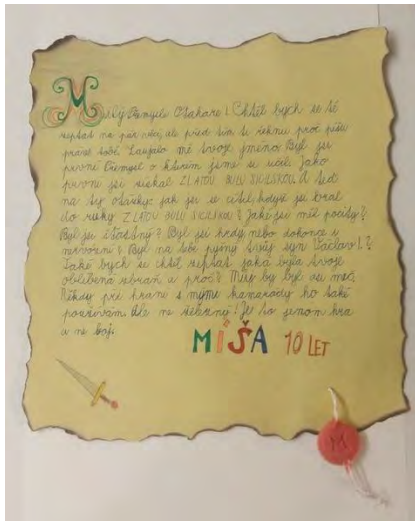 Milý Přemysle Otakare I. Chtěl bych se tě
zeptat na pár věcí, ale před tím ti řeknu proč píšu
právě tobě. Zaujalo mě tvoje jméno. Byl jsi
první Přemysl o kterém jsme se učili. Jako
první jsi získal ZLATOU BULU SICILSKOU. A teď
na ty otázky: jak jsi se cítil, když jsi bral
do ruky ZLATOU BULU SICILSKOU? Jaké jsi měl pocity?
Byl jsi šťastný? Byl jsi hrdý nebo dokonce i
nervózní? Byl na tebe pyšný tvůj syn Václav I.?
Také bych se chtěl zeptat jaká byla tvoje
oblíbená zbraň a proč? Můj by byl asi meč.
Někdy při hraní s mými kamarády ho také
používám. Ale ne stříbrný! Je to jenom hra
a ne boj.
MÍŠA 10 LET
M